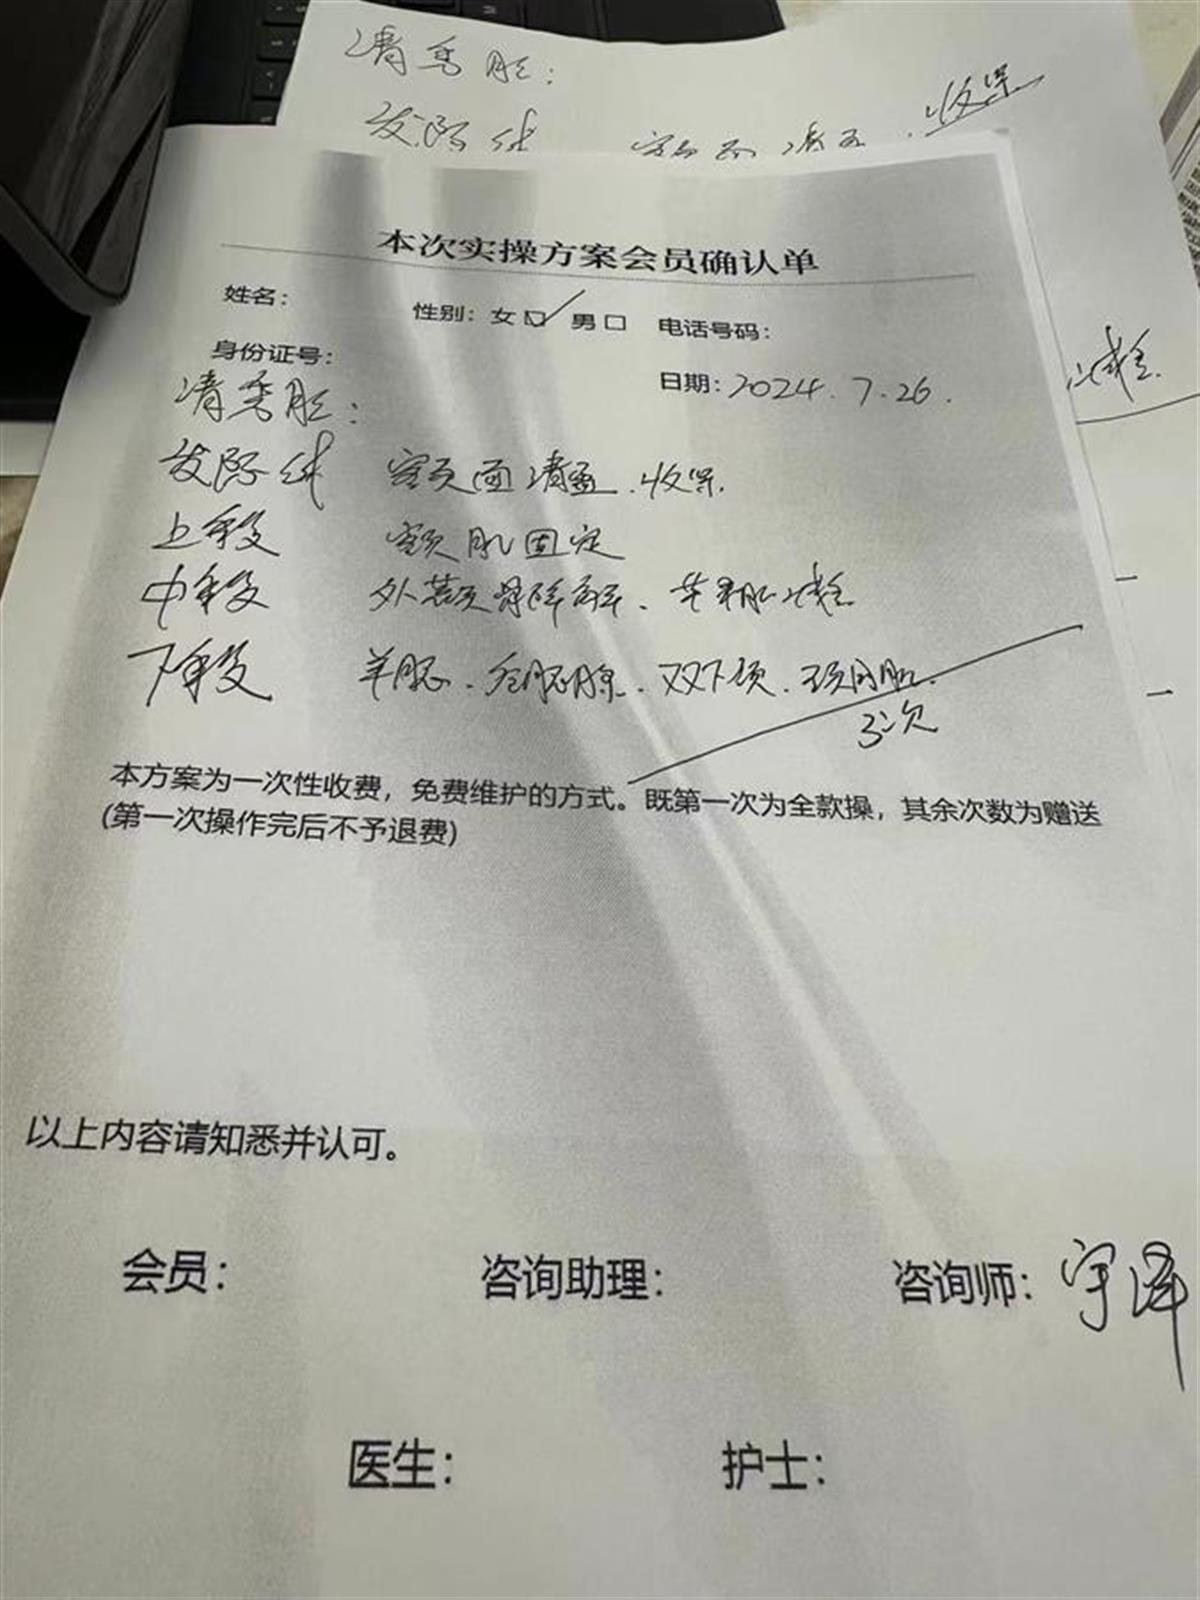 清秀脸:
发际线
收紧
本次实操方案会员确认单
姓名: 性别: 女☑ 男☐ 电话号码:
身份证号: 日期: 2024.7.26.
清秀脸:
发际线 额页面清 . 收紧.
上手段 额肌固定
中手段 外 颧骨降
下手段 羊腮. 双下颌. 颈阔肌.
3次
本方案为一次性收费，免费维护的方式。既第一次为全款操，其余次数为赠送
(第一次操作完后不予退费)
以上内容请知悉并认可。
会员: 咨询助理: 咨询师: 宇泽
医生: 护士: